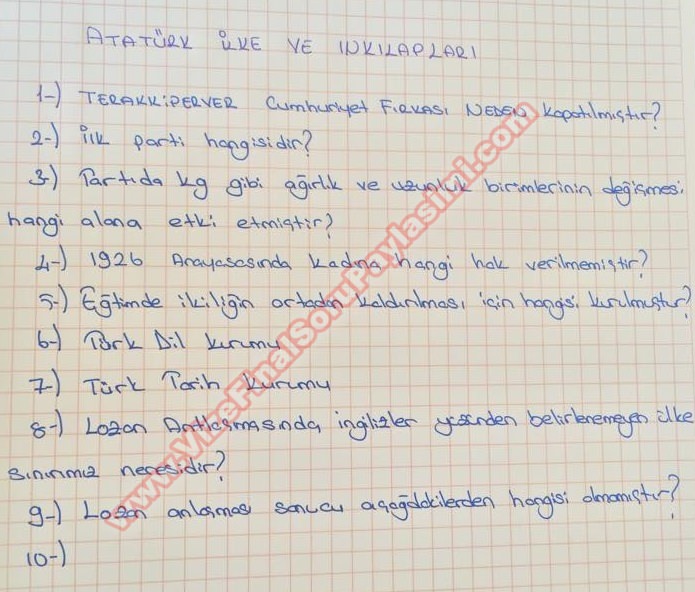 ATATÜRK İLKE VE INKILAPLARI
1-) TERAKKİPERVER Cumhuriyet FIRKASI NEDEN kapatılmıştır?
2-) İlk parti hangisidir?
3-) Tartıda kg gibi ağırlık ve uzunluk birimlerinin değişmesi
hangi alana etki etmiştir?
4-) 1926 Anayasasında kadına hangi hak verilmemiştir?
5-) Eğitimde ikiliğin ortadan kaldırılması için hangisi kurulmuştur?
6-) Türk Dil kurumu
7-) Türk Tarih kurumu
8-) Lozan Antlaşmasında ingilizler yüzünden belirlenemeyen ülke
sınırımız neresidir?
9-) Lozan anlaşması sonucu aşağıdakilerden hangisi olmamıştır?
10-)
www.VizeFinalSoruPaylasimi.com